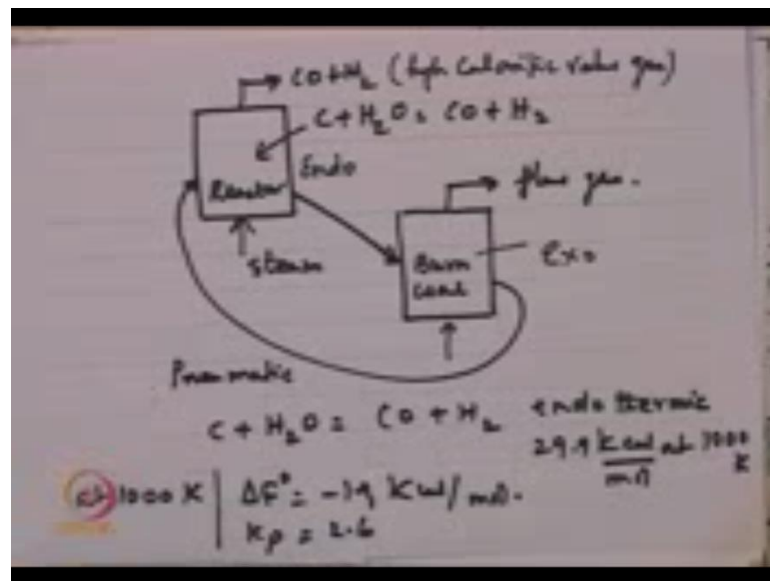 CO+H₂ (high Calorific value gas)
C+H₂O = CO+H₂
Reactor
Endo
flue gas.
Steam
Burn
coal
Exo
Pneumatic
C + H₂O = CO + H₂ endothermic
29.9 Kcal at 1000 K
mol
at 1000 K ΔF° = -1.9 Kcal/mol.
Kp = 2.6